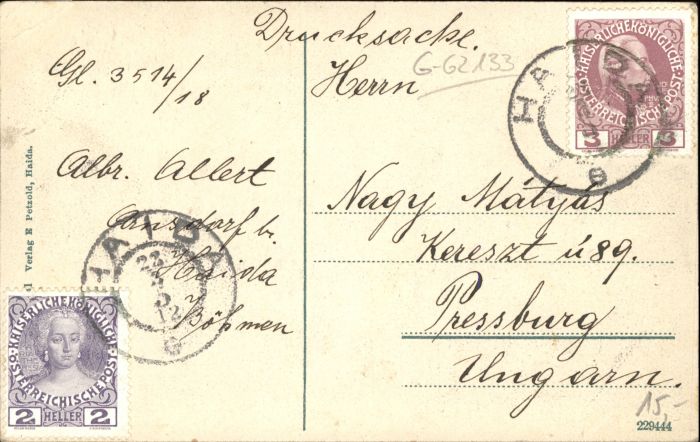 Drucksache.
G-G2133
Herrn
Gl. 3514/18
Albr. Allert
Arnsdorf b.
Haida
Böhmen
Nagy Mátyás
Kereszt ú 89.
Pressburg
Ungarn.
Verlag E Petzold, Haida.
HAIDA
e
HAIDA
22
12
e
KAISERLICHE KÖNIGLICHE
ÖSTERREICHISCHE POST
3 HELLER 3
KAISERLICHE KÖNIGLICHE
ÖSTERREICHISCHE POST
2 HELLER 2
15,-
229444